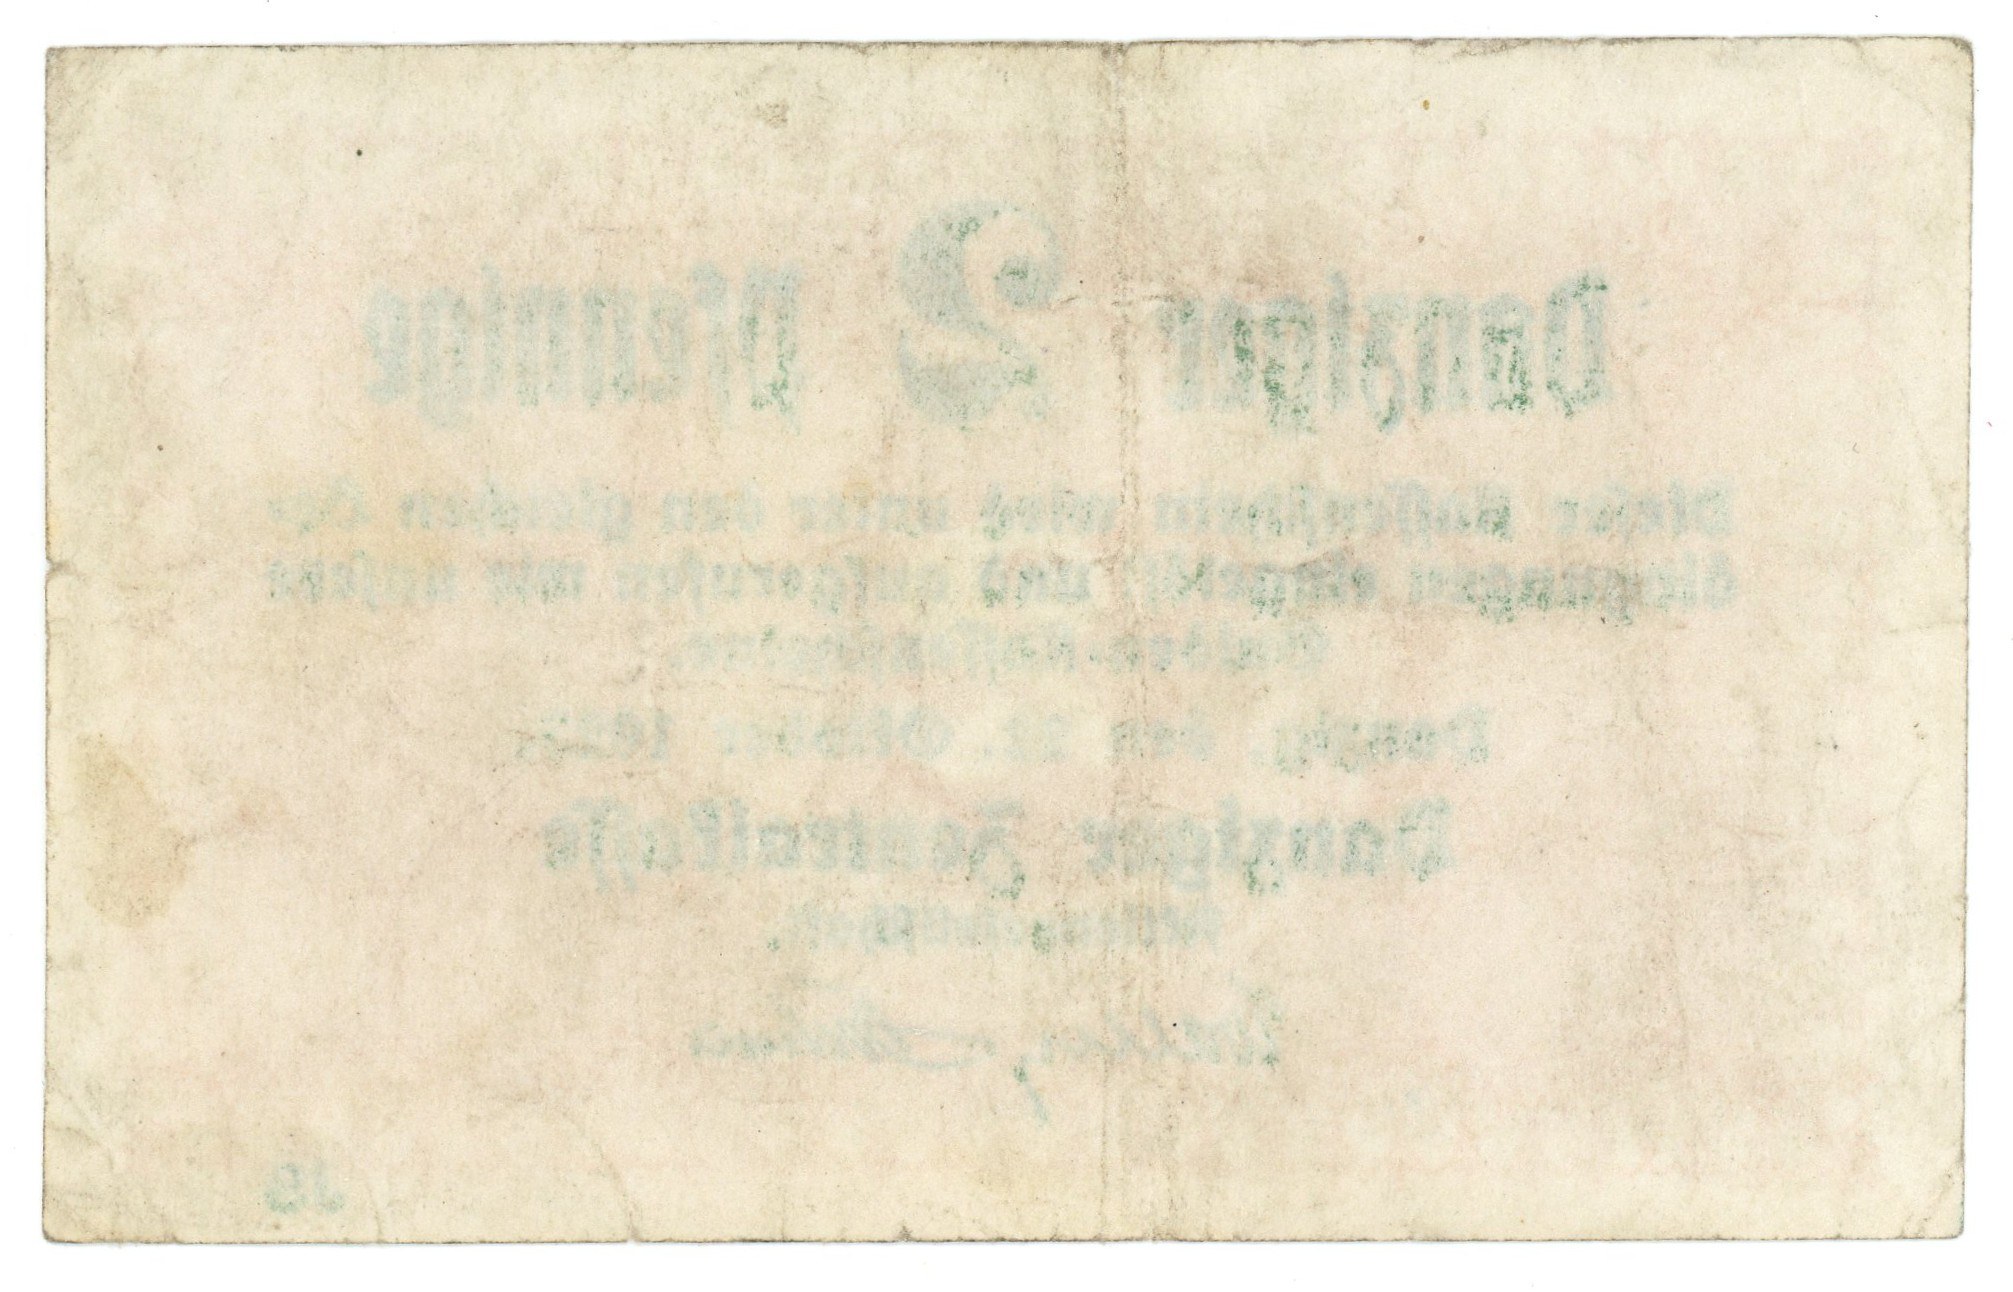 Danziger 2 Pfennige
Dieser Kassenschein wird unter den gleichen Be-
dingungen eingelöst und aufgerufen wie unsere
Gulden-Kassenscheine.
Danzig, den 22. Oktober 1923.
Danziger Zentralkasse
Aktiengesellschaft.